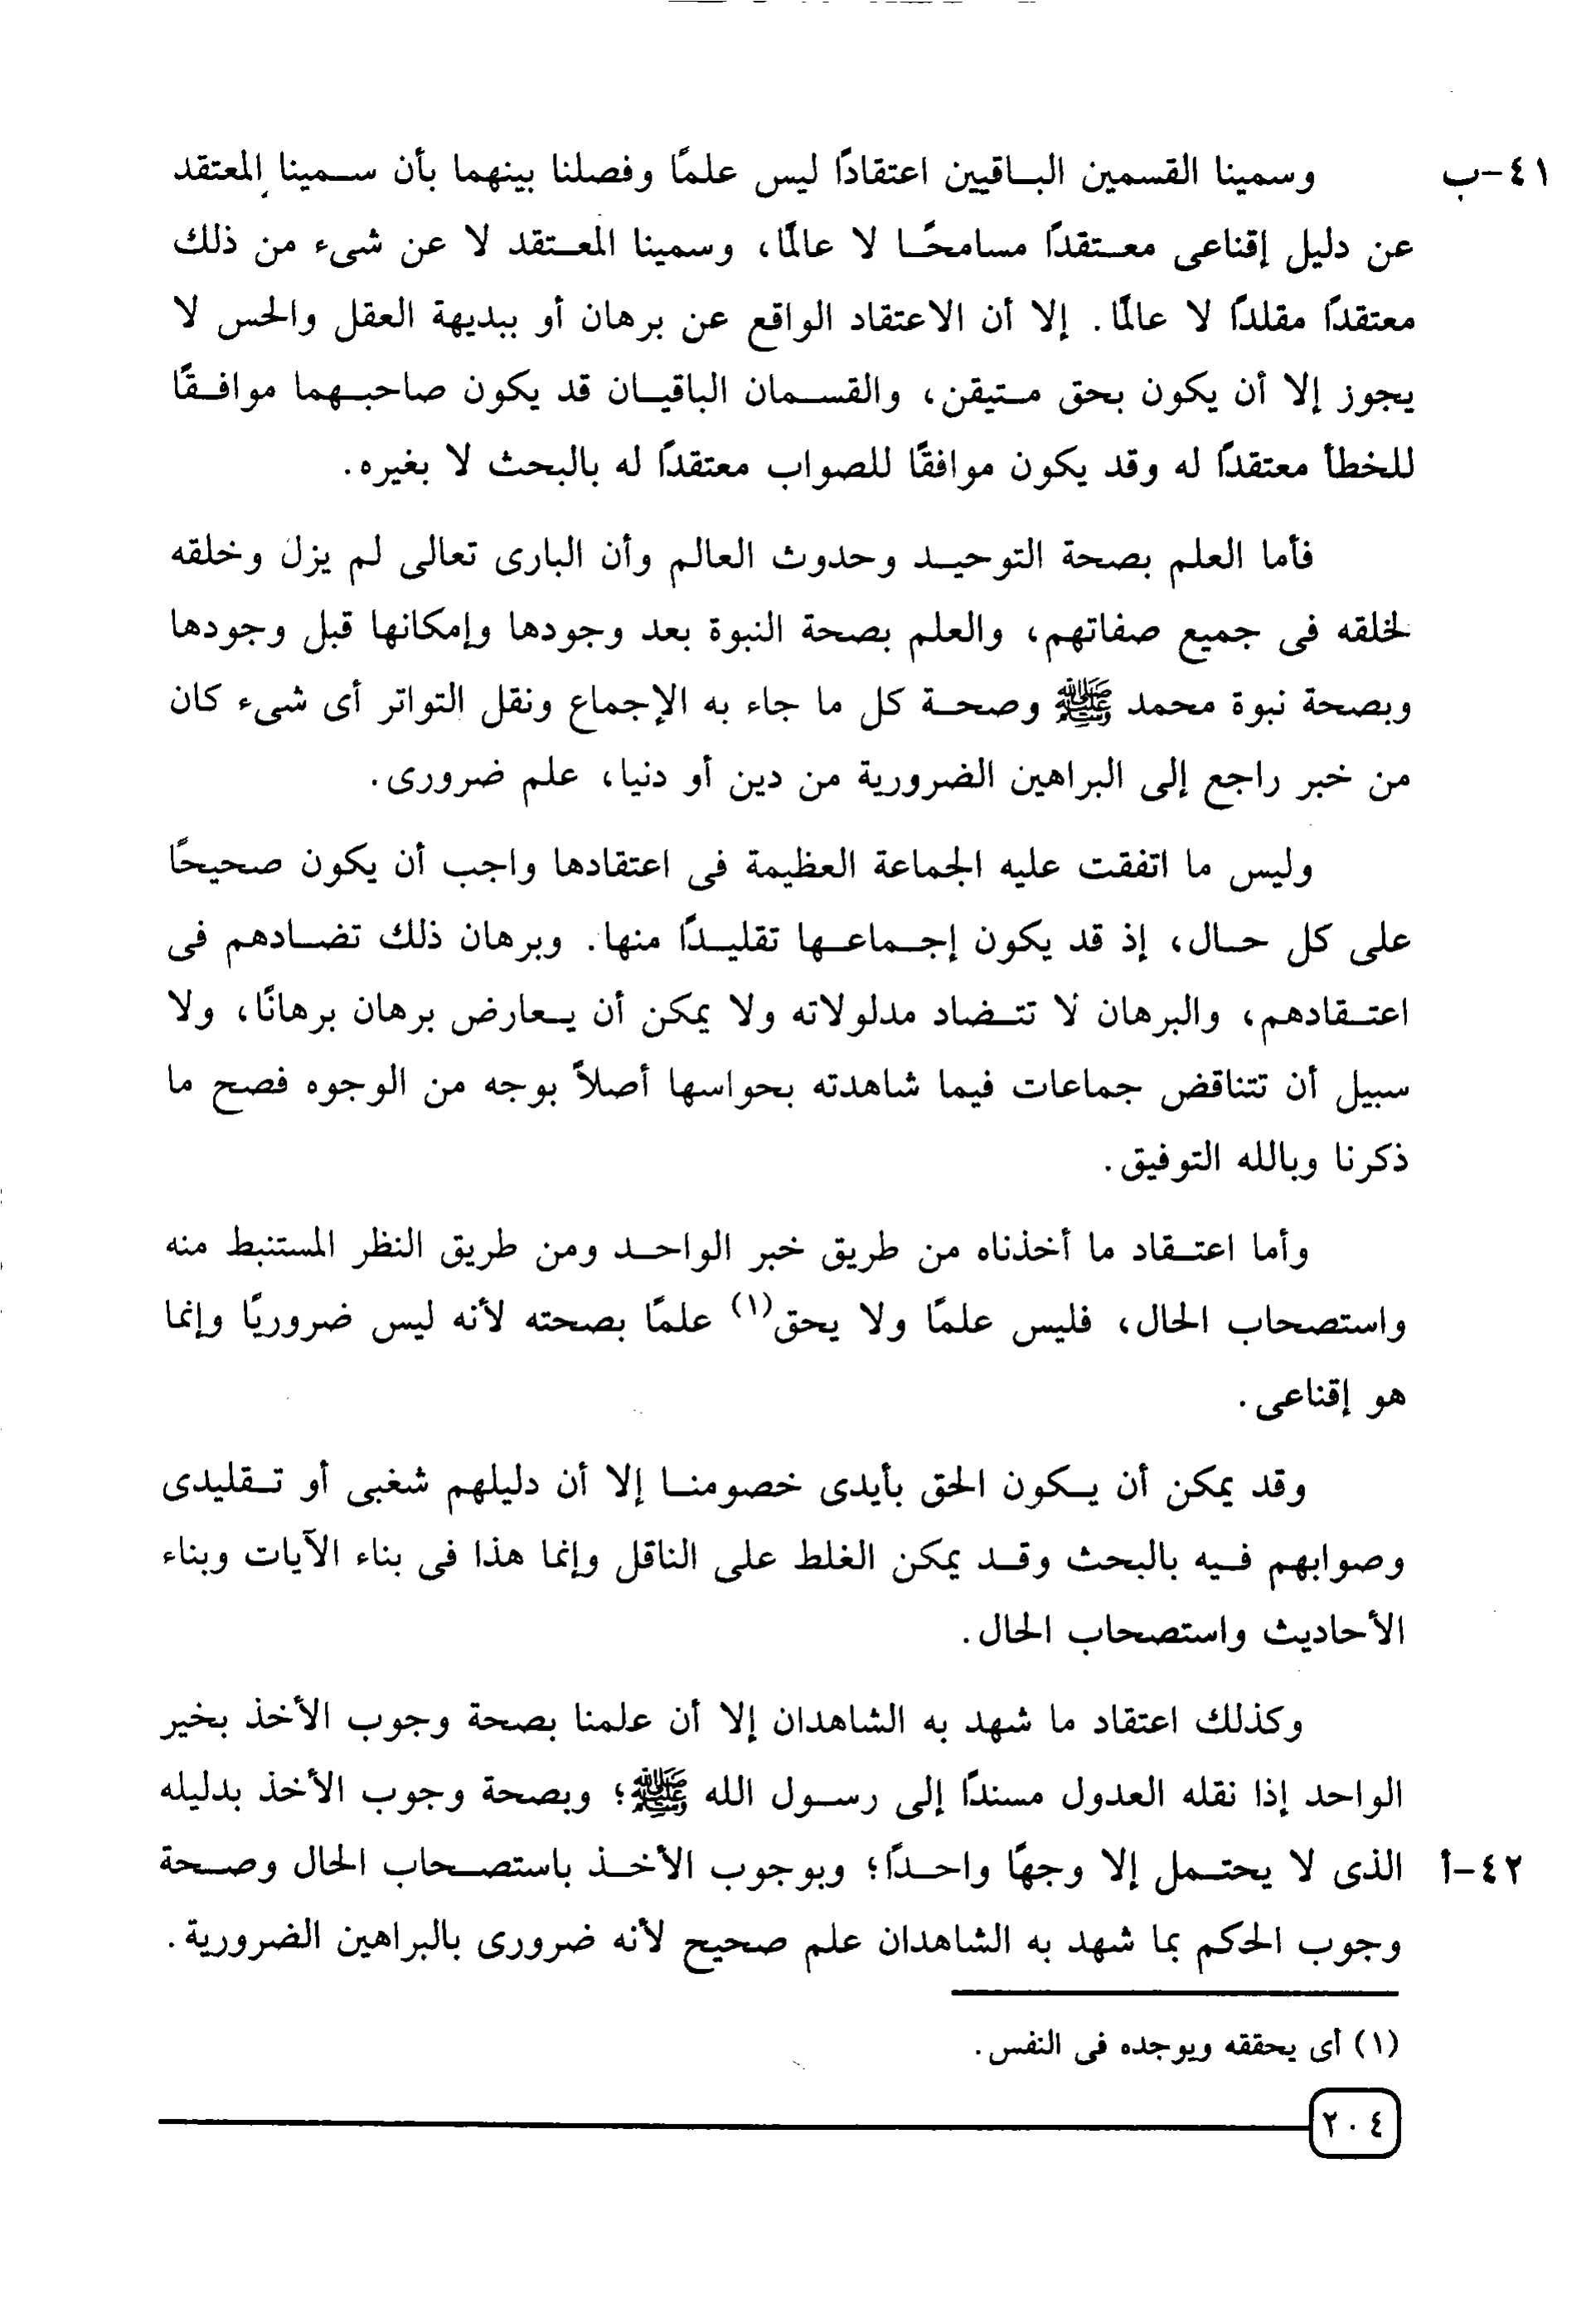 ٤١-ب وسمينا القسمين الباقيين اعتقادًا ليس علمًا وفصلنا بينهما بأن سمينا المعتقد
عن دليل إقناعى معتقدًا مسامحًا لا عالمًا، وسمينا المعتقد لا عن شىء من ذلك
معتقدًا مقلدًا لا عالمًا. إلا أن الاعتقاد الواقع عن برهان أو ببديهة العقل والحس لا
يجوز إلا أن يكون بحق متيقن، والقسمان الباقيان قد يكون صاحبهما موافقًا
للخطأ معتقدًا له وقد يكون موافقًا للصواب معتقدًا له بالبحث لا بغيره.
فأما العلم بصحة التوحيد وحدوث العالم وأن البارى تعالى لم يزل وخلقه
لخلقه فى جميع صفاتهم، والعلم بصحة النبوة بعد وجودها وإمكانها قبل وجودها
وبصحة نبوة محمد ﷺ وصحة كل ما جاء به الإجماع ونقل التواتر أى شىء كان
من خبر راجع إلى البراهين الضرورية من دين أو دنيا، علم ضرورى.
وليس ما اتفقت عليه الجماعة العظيمة فى اعتقادها واجب أن يكون صحيحًا
على كل حال، إذ قد يكون إجماعها تقليدًا منها. وبرهان ذلك تضادهم فى
اعتقادهم، والبرهان لا تتضاد مدلولاته ولا يمكن أن يعارض برهان برهانًا، ولا
سبيل أن تتناقض جماعات فيما شاهدته بحواسها أصلاً بوجه من الوجوه فصح ما
ذكرنا وبالله التوفيق.
وأما اعتقاد ما أخذناه من طريق خبر الواحد ومن طريق النظر المستنبط منه
واستصحاب الحال، فليس علمًا ولا يحق(١) علمًا بصحته لأنه ليس ضروريًا وإنما
هو إقناعى.
وقد يمكن أن يكون الحق بأيدى خصومنا إلا أن دليلهم شغبى أو تقليدى
وصوابهم فيه بالبحث وقد يمكن الغلط على الناقل وإنما هذا فى بناء الآيات وبناء
الأحاديث واستصحاب الحال.
وكذلك اعتقاد ما شهد به الشاهدان إلا أن علمنا بصحة وجوب الأخذ بخير
الواحد إذا نقله العدول مسندًا إلى رسول الله ﷺ؛ وبصحة وجوب الأخذ بدليله
٤٢-أ الذى لا يحتمل إلا وجهًا واحدًا؛ وبوجوب الأخذ باستصحاب الحال وصحة
وجوب الحكم بما شهد به الشاهدان علم صحيح لأنه ضرورى بالبراهين الضرورية.
(١) أى يحققه ويوجده فى النفس.
٢٠٤